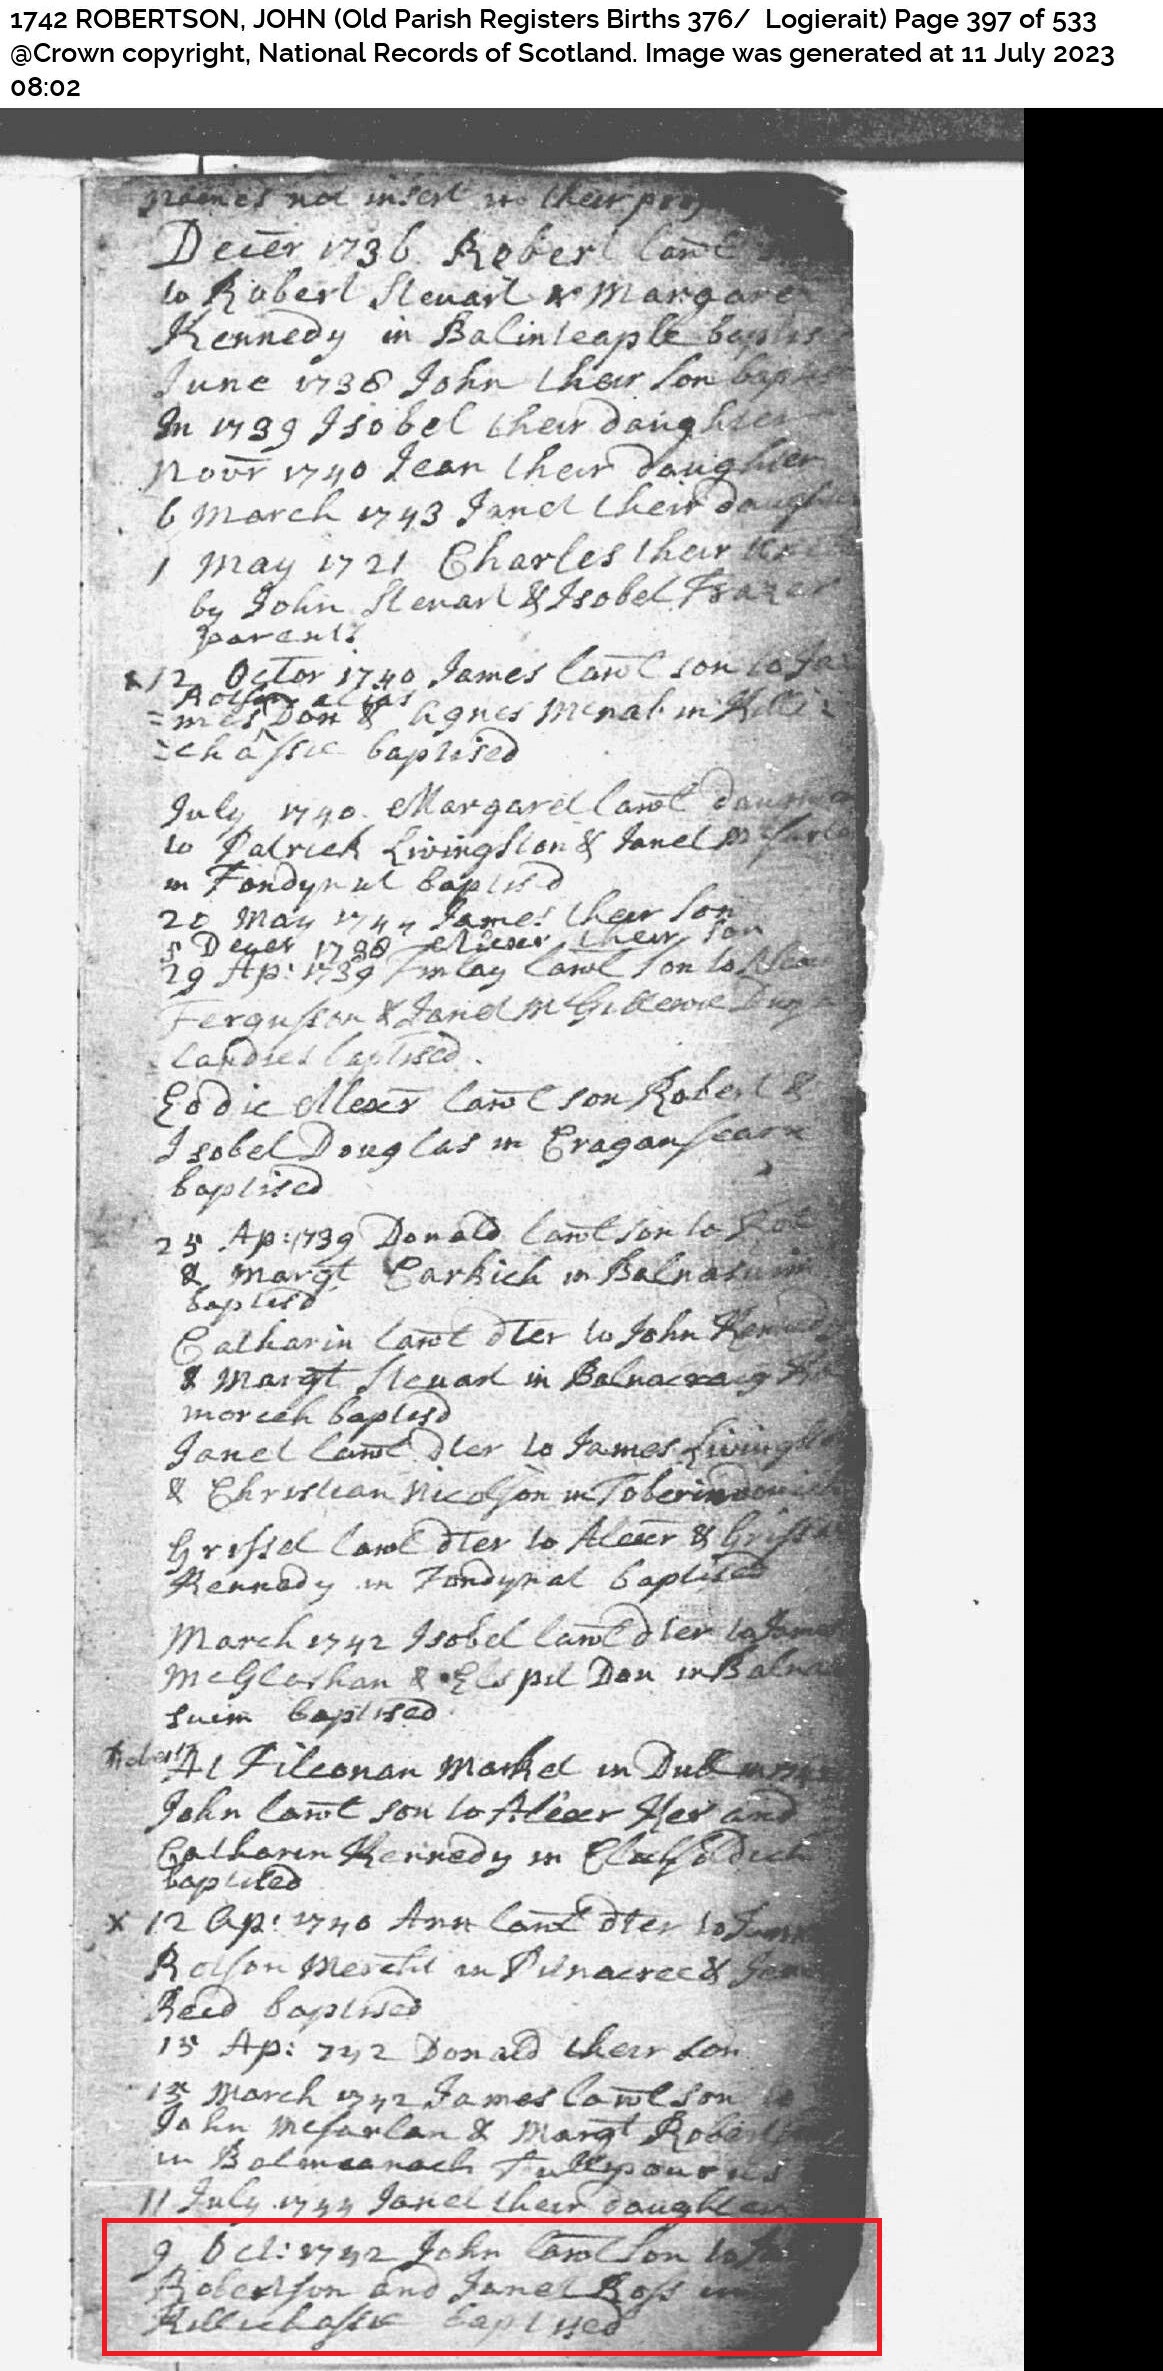 1742 ROBERTSON, JOHN (Old Parish Registers Births 376/ Logierait) Page 397 of 533
@Crown copyright, National Records of Scotland. Image was generated at 11 July 2023
08:02
names not insert in their
Decer 1736 Robert lawl
to Robert Steuart & Margare
Kennedy in Balinteaple baptis
June 1738 John their son bap
In 1739 Isobel their daughter
Novr 1740 Jean their daughter
6 March 1743 Janet their daughter
1 May 1721 Charles their
by John Steuart & Isobel Frazer
parents
x 12 Octor 1740 James lawl son to Ja
Rotson alias
=mes ^ Don & Agnes Mcnab in Killi=
=chassie baptised
July 1740 Margaret lawl daughter
to Patrick Livingston & Janet
in Fondynut baptisd
20 May 1744 James their son
5 Decer 1738 Alexer their son
29 Ap: 1739 Finlay lawl son to Alexr
Fergusson & Janet
baptised.
Eddie Alexr lawl son Robert &
Isobel Douglas in
baptised
25 Ap: 1739 Donald lawl son to Rot
& Margt in
baptisd
Catharin lawl dter to John Kennedy
& Margt Steuart in Balnacraig
baptisd
Janet lawl dter to James Livingsto
& Christian Nicolson in
Grissel lawl dter to Alexr & Grissel
Kennedy in Fondynat baptised
March 1742 Isobel lawl dter to James
McGlashan & Elspit Don in Balna
suim baptised
At Fileonan Market in Dull
John lawl son to Alexr Ker and
Catharin Kennedy in
baptised
x 12 Ap: 1740 Ann lawl dter to
Rotson Mercht in Pitnacree &
Reid baptised
15 Ap: 742 Donald their son
15 March 1742 James lawl son to
John Mcfarlan & Margt Robertson
in Balmeanach Tullypouries
11 July 1744 Janet their daughter
9 Oct: 1742 John lawl son to
Robertson and Janet Ross in
Killiehassie baptised